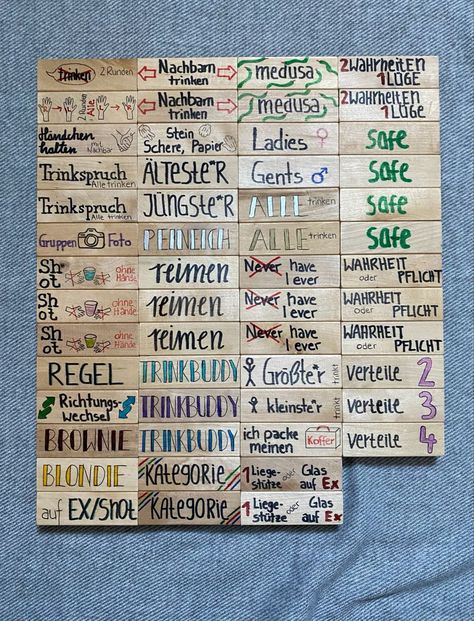 Trinken 2 Runden
2 Runden Alle
Händchen halten mit Nachbar
Trinkspruch
Alle trinken
Trinkspruch
Alle trinken
Gruppen Foto
Sh
ot
ohne
Hände
Sh
ot
ohne
Hände
Sh
ot
ohne
Hände
REGEL
Richtungs-
wechsel
BROWNIE
BLONDIE
auf EX/Shot
Nachbarn
trinken
Nachbarn
trinken
Stein
Schere, Papier
ÄLTESTE*R
JÜNGSTE*R
PEINLICH
reimen
reimen
reimen
TRINKBUDDY
TRINKBUDDY
TRINKBUDDY
KATEGORIE
KATEGORIE
medusa
medusa
Ladies
Gents
ALLE trinken
ALLE trinken
Never have
I ever
Never have
I ever
Never have
I ever
Größte*r trinkt
kleinste*r trinkt
ich packe
meinen Koffer
1 Liege-
stütze oder Glas
auf Ex
1 Liege-
stütze oder Glas
auf Ex
2 Wahrheiten
1 LÜGE
2 Wahrheiten
1 LÜGE
safe
safe
safe
safe
WAHRHEIT
oder PFLICHT
WAHRHEIT
oder PFLICHT
WAHRHEIT
oder PFLICHT
Verteile 2
Verteile 3
Verteile 4